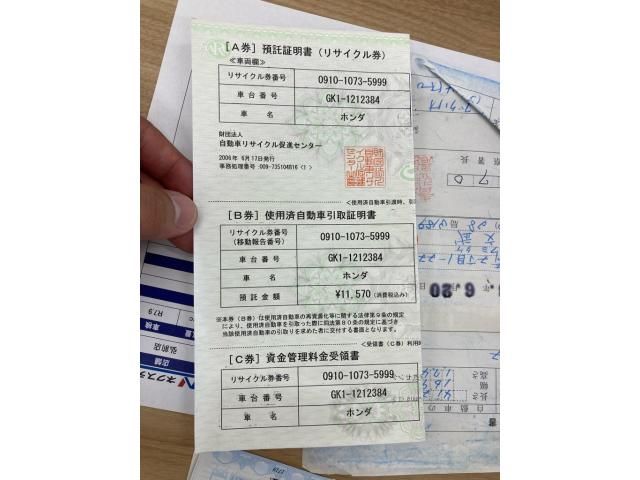 [A券] 預託証明書 (リサイクル券)
≪車両欄≫
リサイクル券番号 0910-1073-5999
車台番号 GK1-1212384
車名 ホンダ
財団法人
自動車リサイクル促進センター
2006年 6月17日発行
事務処理番号:009-735104816
<使用済自動車引渡時、引
[B券] 使用済自動車引取証明書
リサイクル券番号 (移動報告番号) 0910-1073-5999
車台番号 GK1-1212384
車名 ホンダ
預託金額 ¥11,570 (消費税込み)
※本券(B券)は使用済自動車の再資源化等に関する法律第9条の規定
により、使用済自動車を引取った際に同法第80条の規定に基づき
当該使用済自動車の引取りを求めた者に交付する書面となります。
<受領書(C券)利用
[C券] 資金管理料金受領書
リサイクル券番号 0910-1073-5999
車台番号 GK1-1212384
車名 ホンダ
R7.9
車検
店舗
弘前店
ネクステ
署長
70
6.20
自動車の